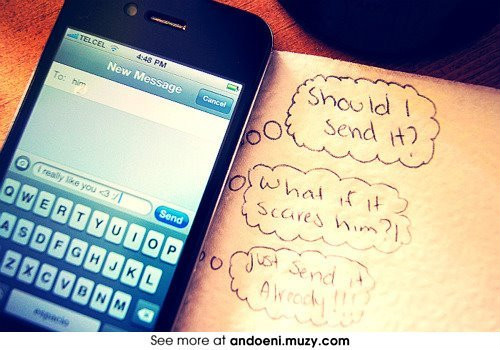 TELCEL
4:48 PM
New Message
Cancel
To: him
I really like you <3 :/
Send
Q W E R T Y U I O P
A S D F G H J K L
Z X C V B N M
espacio
Should I
send it?
What if it
scares him?!
Just send it
Already!!!
See more at andoeni.muzy.com